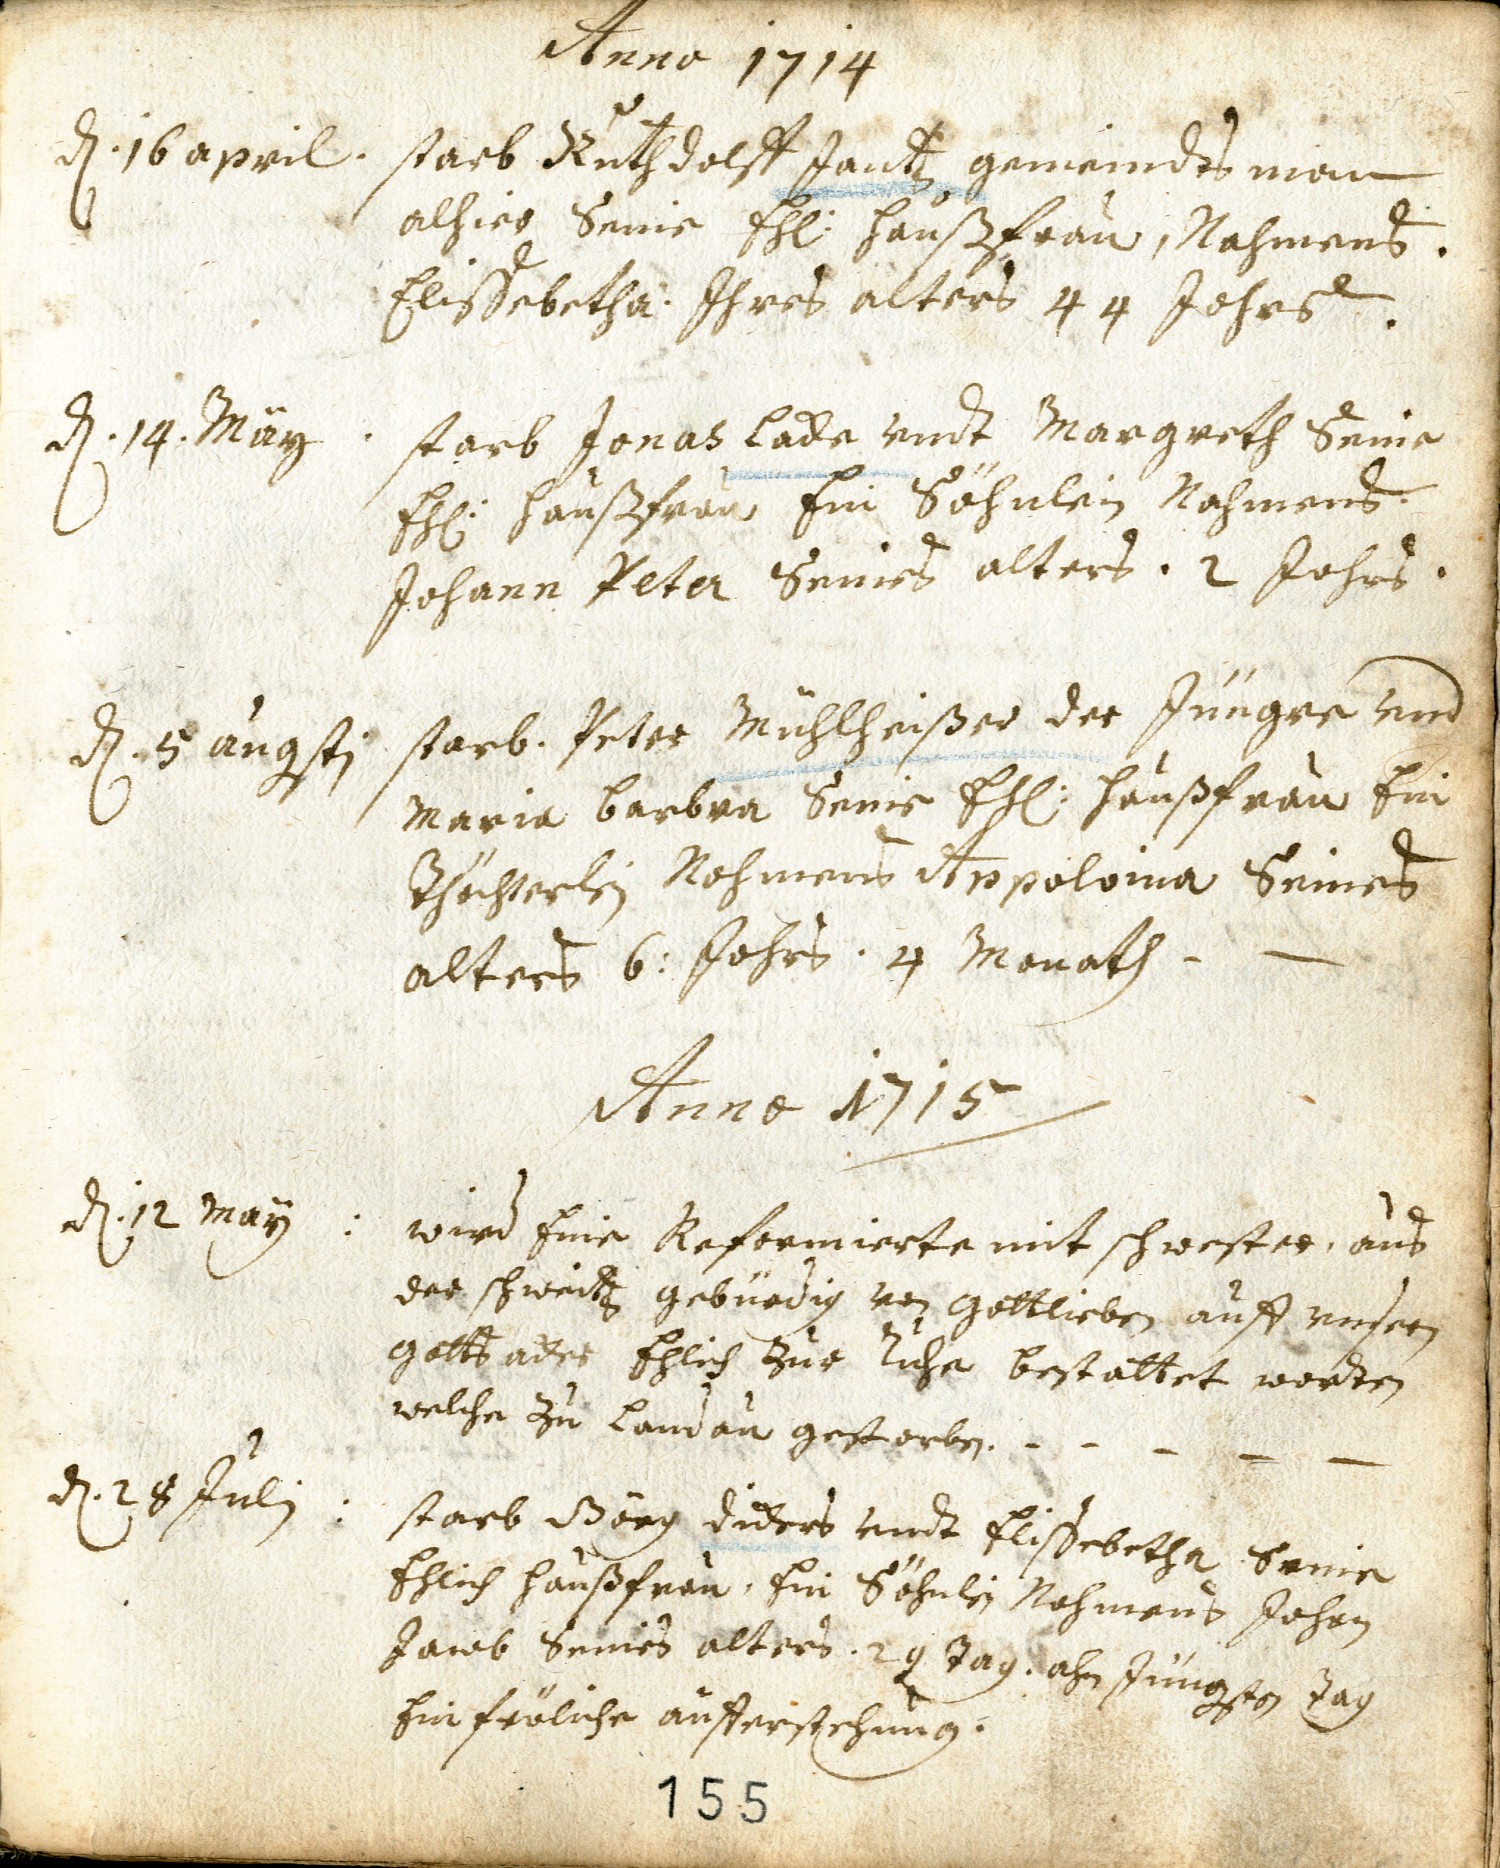 Anno 1714
d. 16 april. starb Ruthdolff Jantz gemeindts man
alhier Seine Ehl: haußfrau, Nahmens.
Elissebetha. Ihres alters 44 Jahrs.
d. 14. Mäÿ. starb Jonas Lade undt Margreth Seine
Ehl: haußfrau Ein Söhnlein Nahmens.
Johann Peter Seines alters. 2 Jahrs.
d. 5 augsti starb. Peter Mühlheißer der Jüngre und
Maria barbra Seine Ehl: haußfrau Ein
Thöchterlein Nahmens Appolonia Seines
alters 6: Jahrs. 4 Monath - —
Anno 1715
d. 12 Maÿ : wird Eine Reformierte mit schwester, aus
der schweitz gebürdig von Gottlieben auff unsern
gotts acker Ehlich zur Ruhe bestattet worden
welche zu Landau gestorben. - - - — —
d. 28 Julij : starb Görg diders undt Elissebetha Seine
Ehlich haußfrau, Ein Söhnlein Nahmens Johan
Jacob Seines alters. 29 Tag. ahn Jüngsten Tag
Ein fröliche aufferstehung.
155